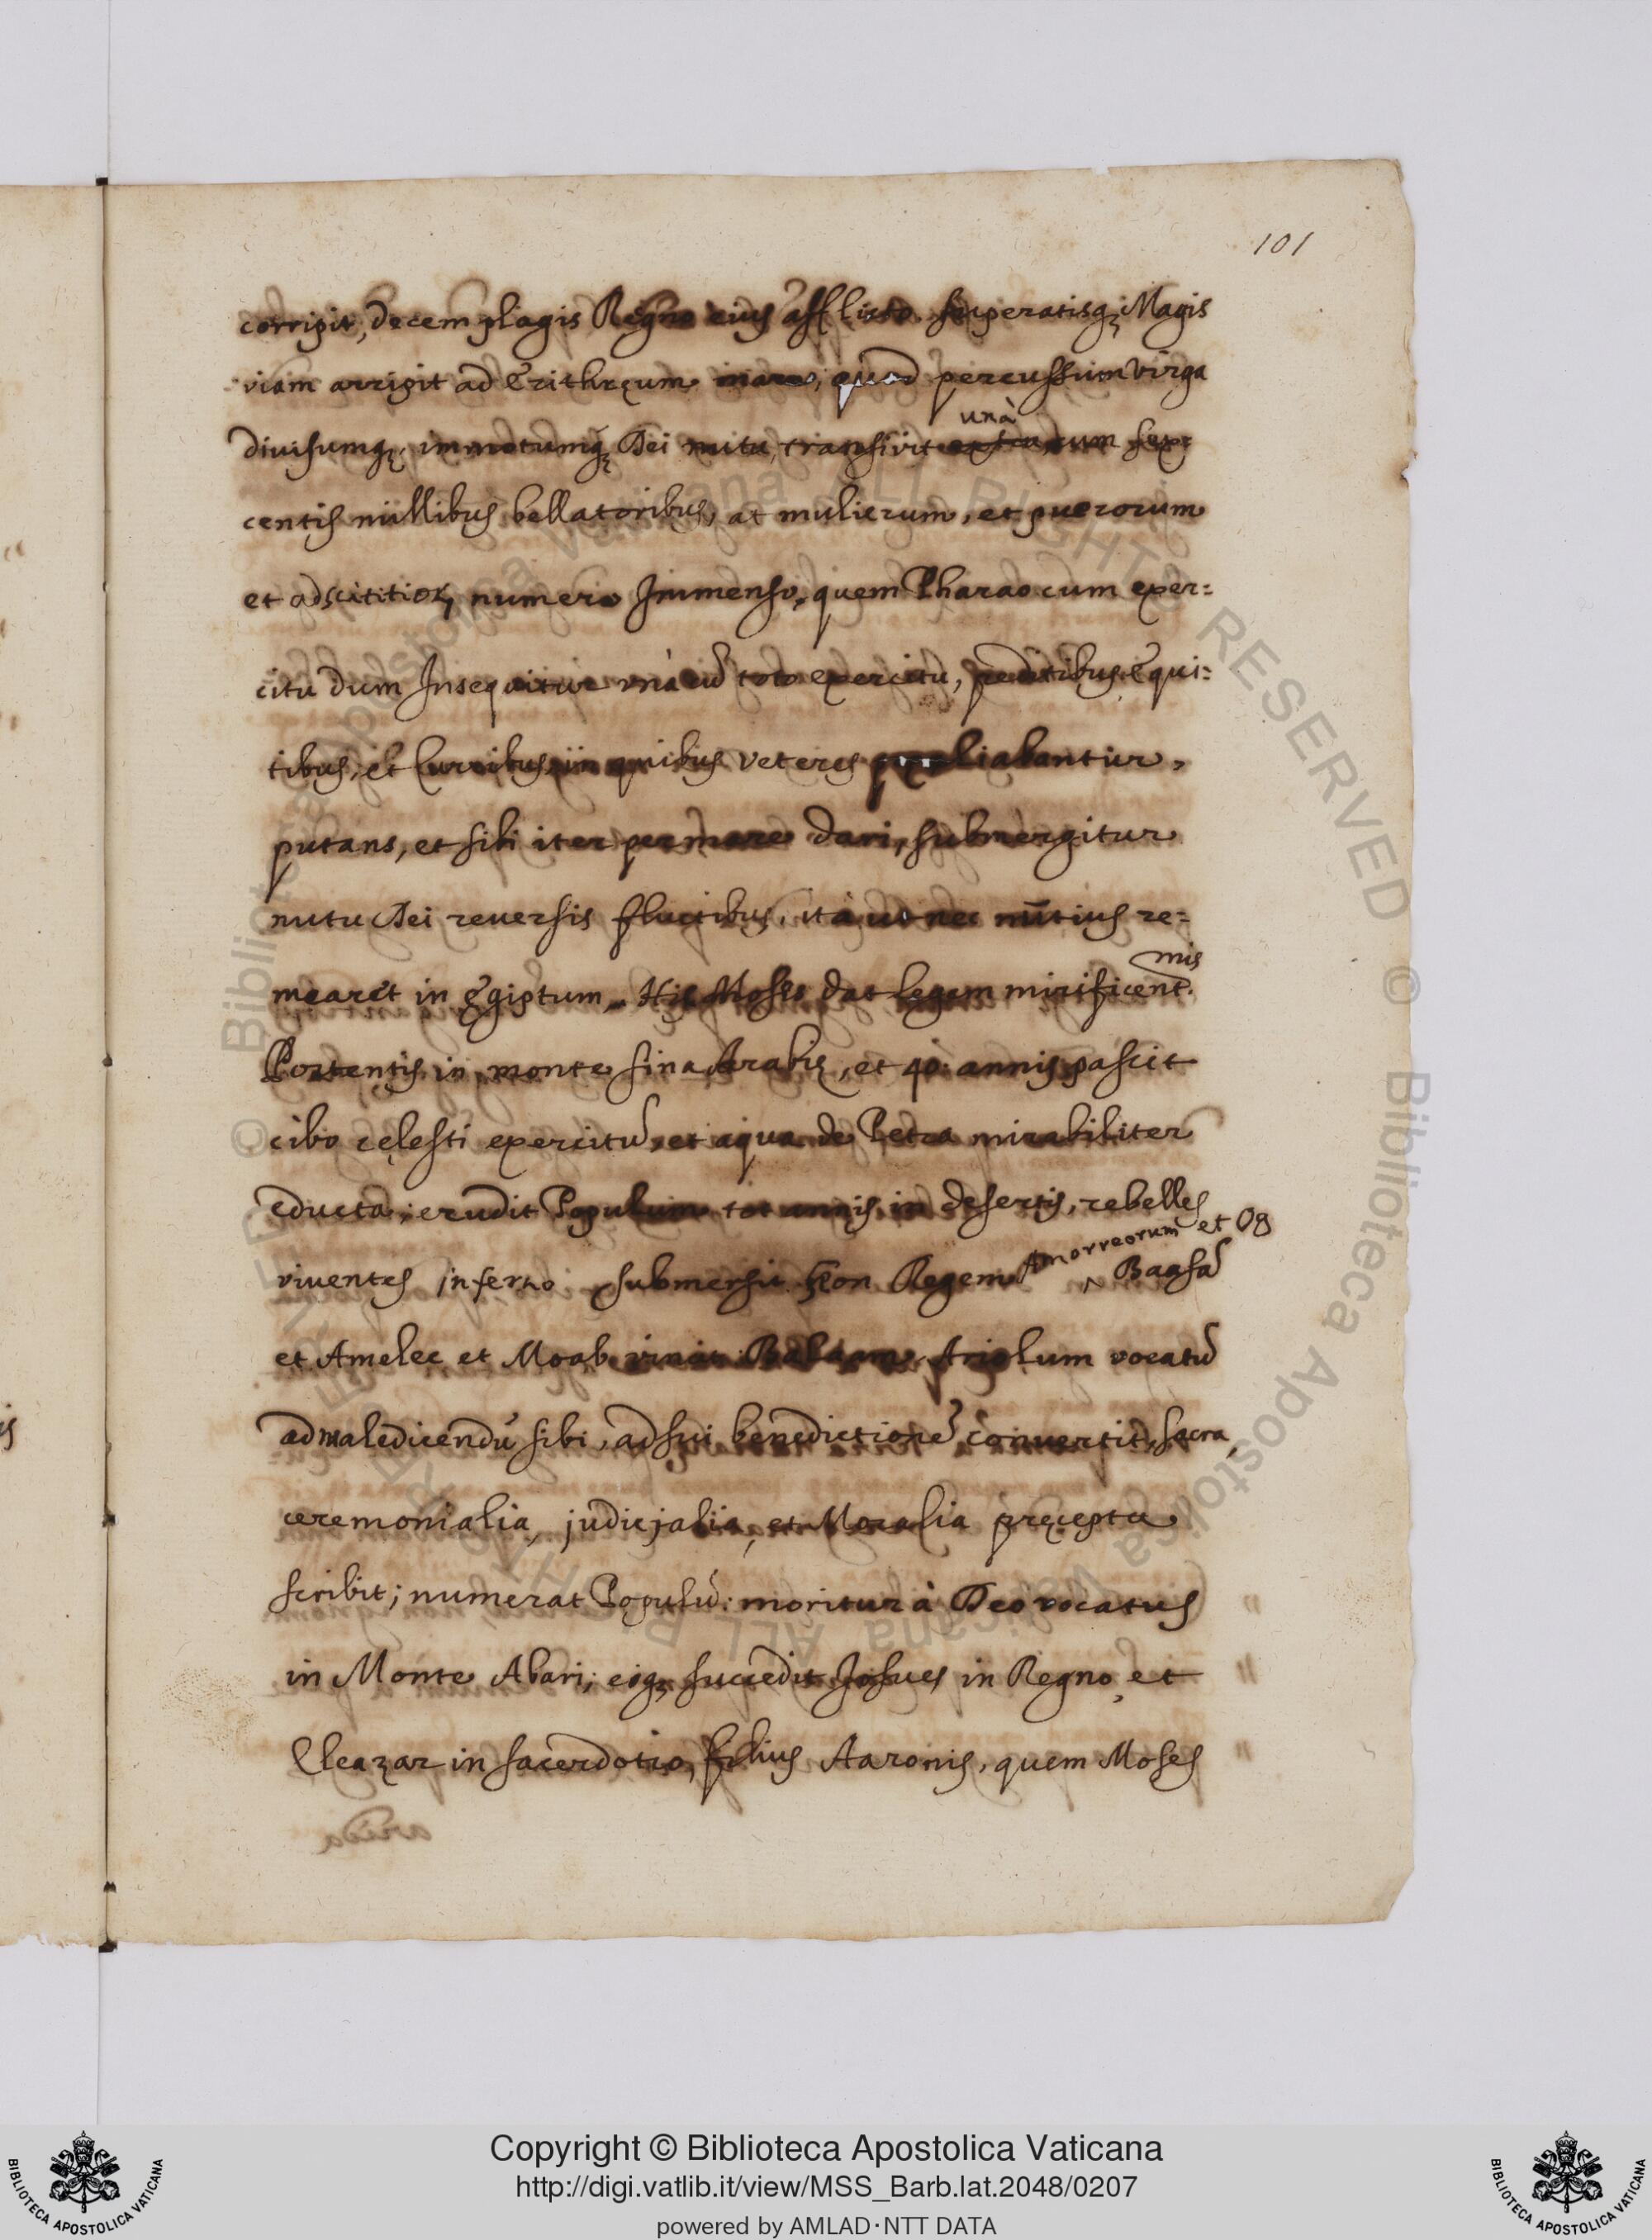 101
corrigit, decem plagis Regno eius afflicto. superatisq; Magis
viam arripit ad Erithręum mare, quod percussum virga
diuisumq; immotumq; Dei nutu, transivit unà cum sex-
centis millibus bellatoribus, at mulierum, et puerorum
et adscititioꝝ numero Immenso, quem Pharao cum exer=
citu dum Insequitur vnà cũ toto exercitu, peditibus Equi=
tibus, et Curribus, in quibus veteres pręliabantur,
putans, et sibi iter per mare dari, submergitur
nutu Dei reuersis fluctibus, ità ut nec nũtius re=
mearet in Ęgiptum. His Moses dat legem mirificentmis.
Portentis in monte sina Arabię, et 40. annis pascit
cibo cęlesti exercitũ, et aqua de Petra mirabiliter
educta; erudit Populum tot annis in desertis, rebelles
viuentes inferno submersit. Regem Amorreorum et Og Baasã
et Amelec et Moab vincit Balaam Ariolum vocatũ
ad maledicendũ sibi, ad sui benedictionẽ conuertit, sacra,
ceremonialia, judicialia, et Moralia pręcepta
scribit; numerat Populũ: moritur à Deo vocatus
in Monte Abari; eiq; succedit Josues in Regno, et
Eleazar in sacerdotio, filius Aaronis, quem Moses
© Biblioteca Apostolica Vaticana ALL RIGHTS RESERVED
Copyright © Biblioteca Apostolica Vaticana
http://digi.vatlib.it/view/MSS_Barb.lat.2048/0207
powered by AMLAD·NTT DATA
BIBLIOTECA APOSTOLICA VATICANA
BIBLIOTECA APOSTOLICA VATICANA